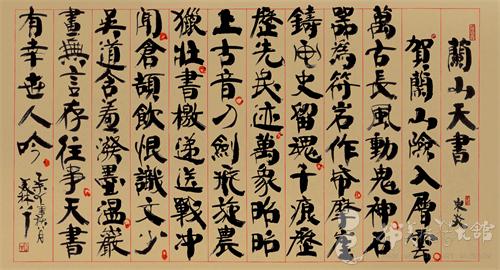 蘭山天書
賀蘭山險入層雲
萬古長風動鬼神石
器為符岩作帋磨崖
鑄史留魂千痕歷
歷先民迹萬象昭昭
上古音刀劍飛旋農
獵壯書檄遞送戰沖
聞倉頡飲恨識文少
吳道含羞潑墨溫巖
畫無言存往事天書
有幸世人吟